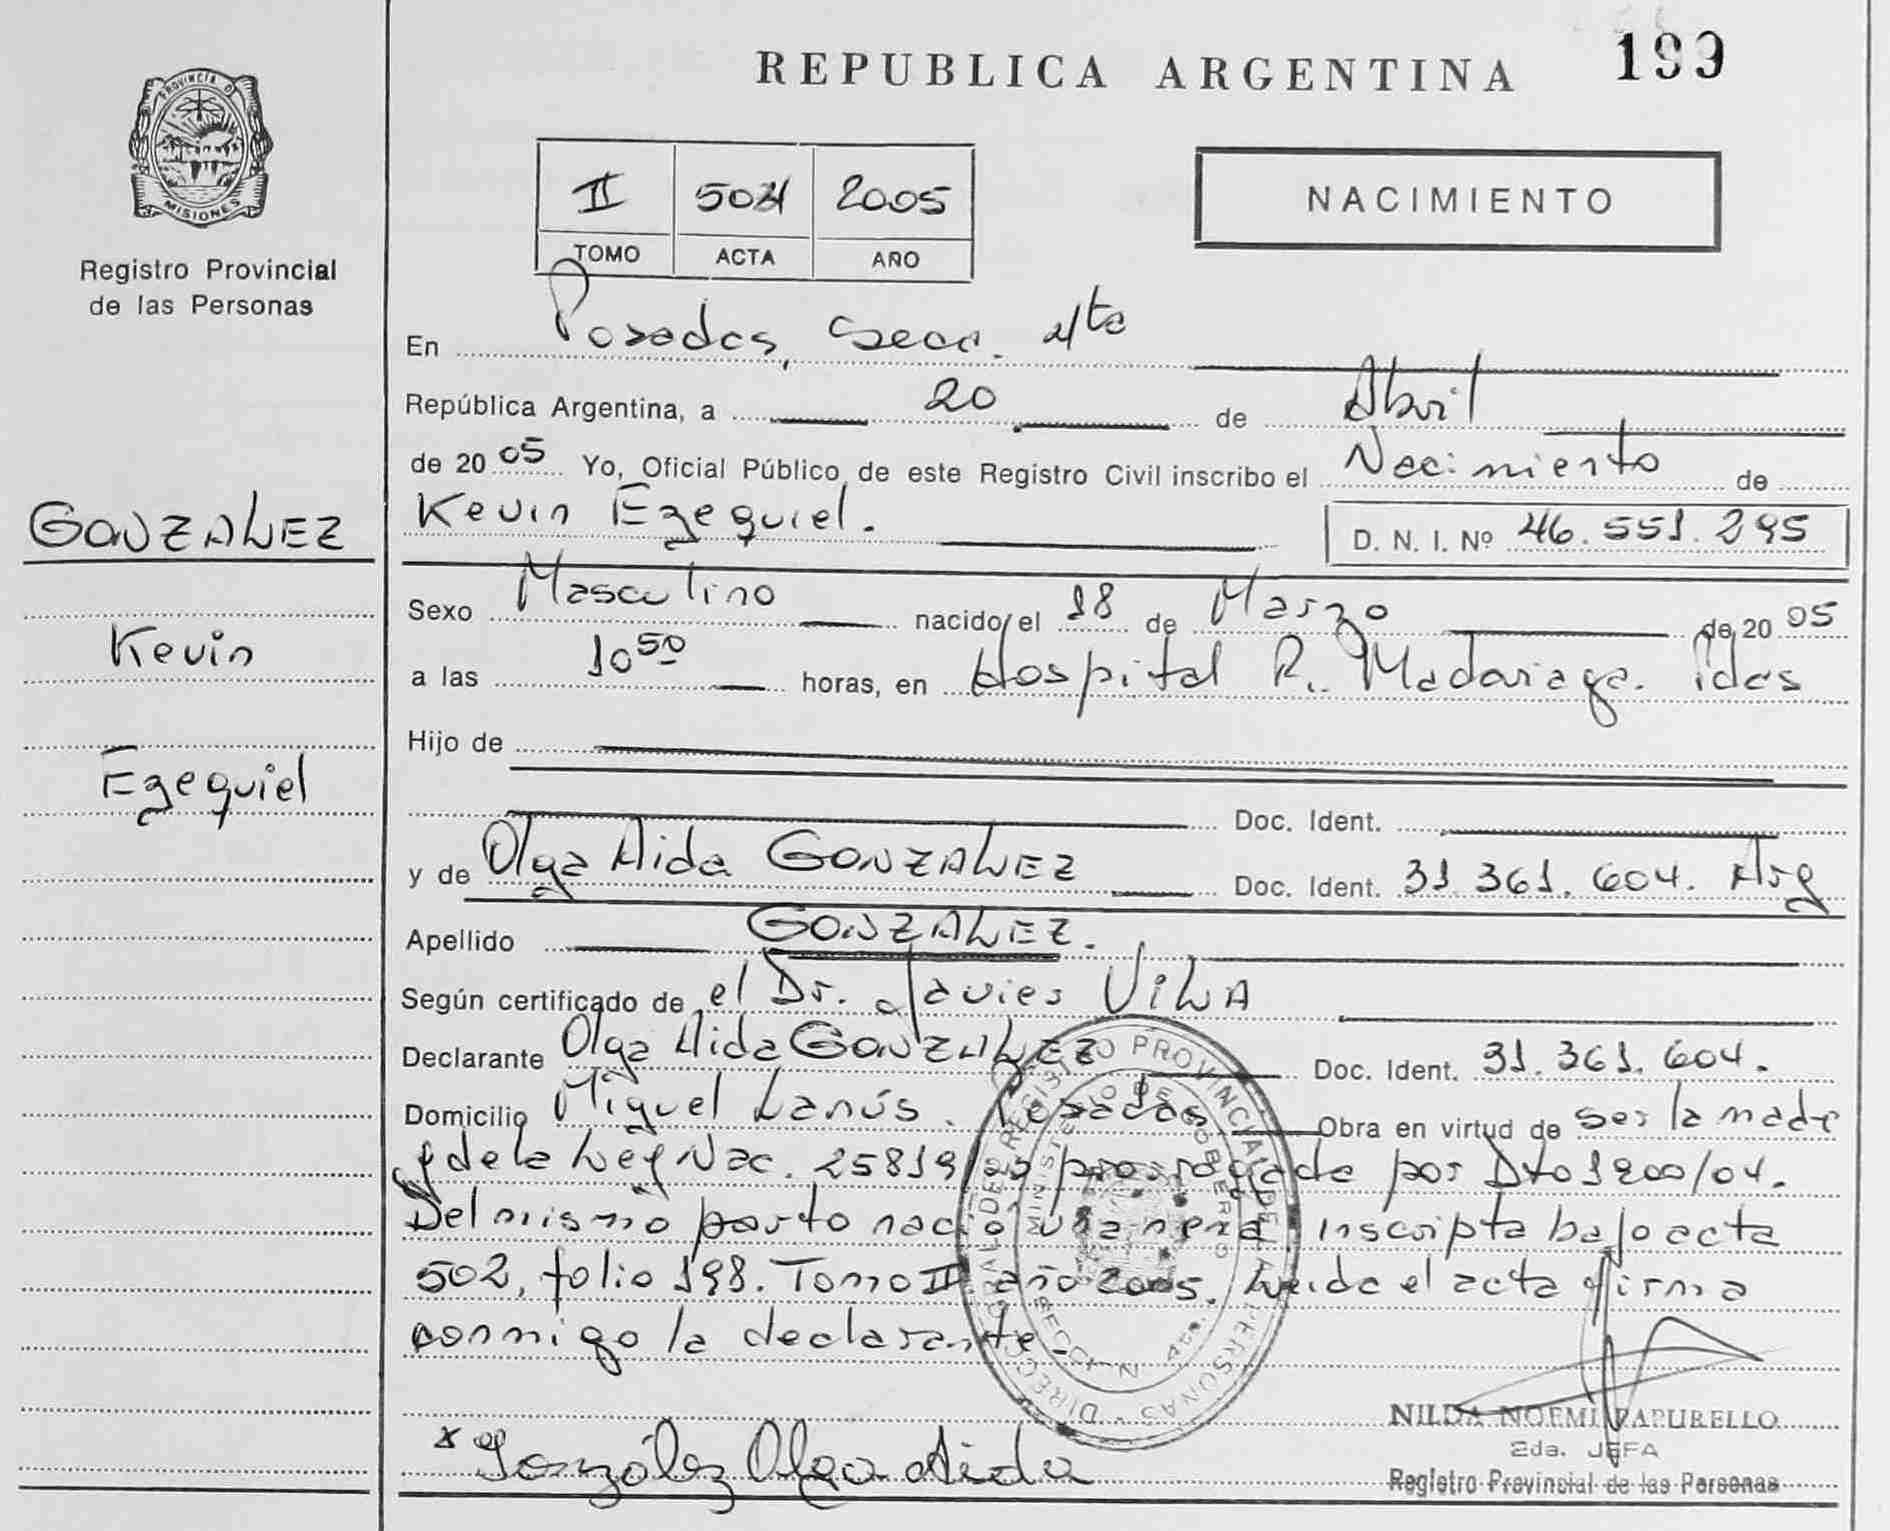 REPUBLICA ARGENTINA 199
PROVINCIA D
MISIONES
Registro Provincial
de las Personas
II 2005
TOMO ACTA AÑO
NACIMIENTO
En Posadas, Secc. 4ta
República Argentina, a 20 de Abril
de 2005 Yo, Oficial Público de este Registro Civil inscribo el Nacimiento de
Kevin Ezequiel. D. N. I. Nº 46.551.295
GONZALEZ
Kevin
Ezequiel
Sexo Masculino nacido el 18 de Marzo de 2005
a las 10 50 horas, en Hospital R. Madariaga. Pdas
Hijo de
Doc. Ident.
y de Olga Aida GONZALEZ Doc. Ident. 31.361.604. Arg
Apellido GONZALEZ.
Según certificado de el Dr. Javier VILA
Declarante Olga Aida GONZALEZ Doc. Ident. 31.361.604.
Domicilio Miguel Lanús. Posadas Obra en virtud de ser la madre
y de la Ley Nac. 25819/03 prorrogada por Dto 1200/04.
Del mismo parto nació una nena inscripta bajo acta
502, folio 198. Tomo II año 2005. Leida el acta firma
conmigo la declarante.
DIRECCION GRAL DEL REGISTRO PROVINCIAL DE LAS PERSONAS
MINISTERIO DE GOBIERNO
NILDA NOEMI PAPURELLO
2da. JEFA
Registro Provincial de las Personas
x González Olga Aida